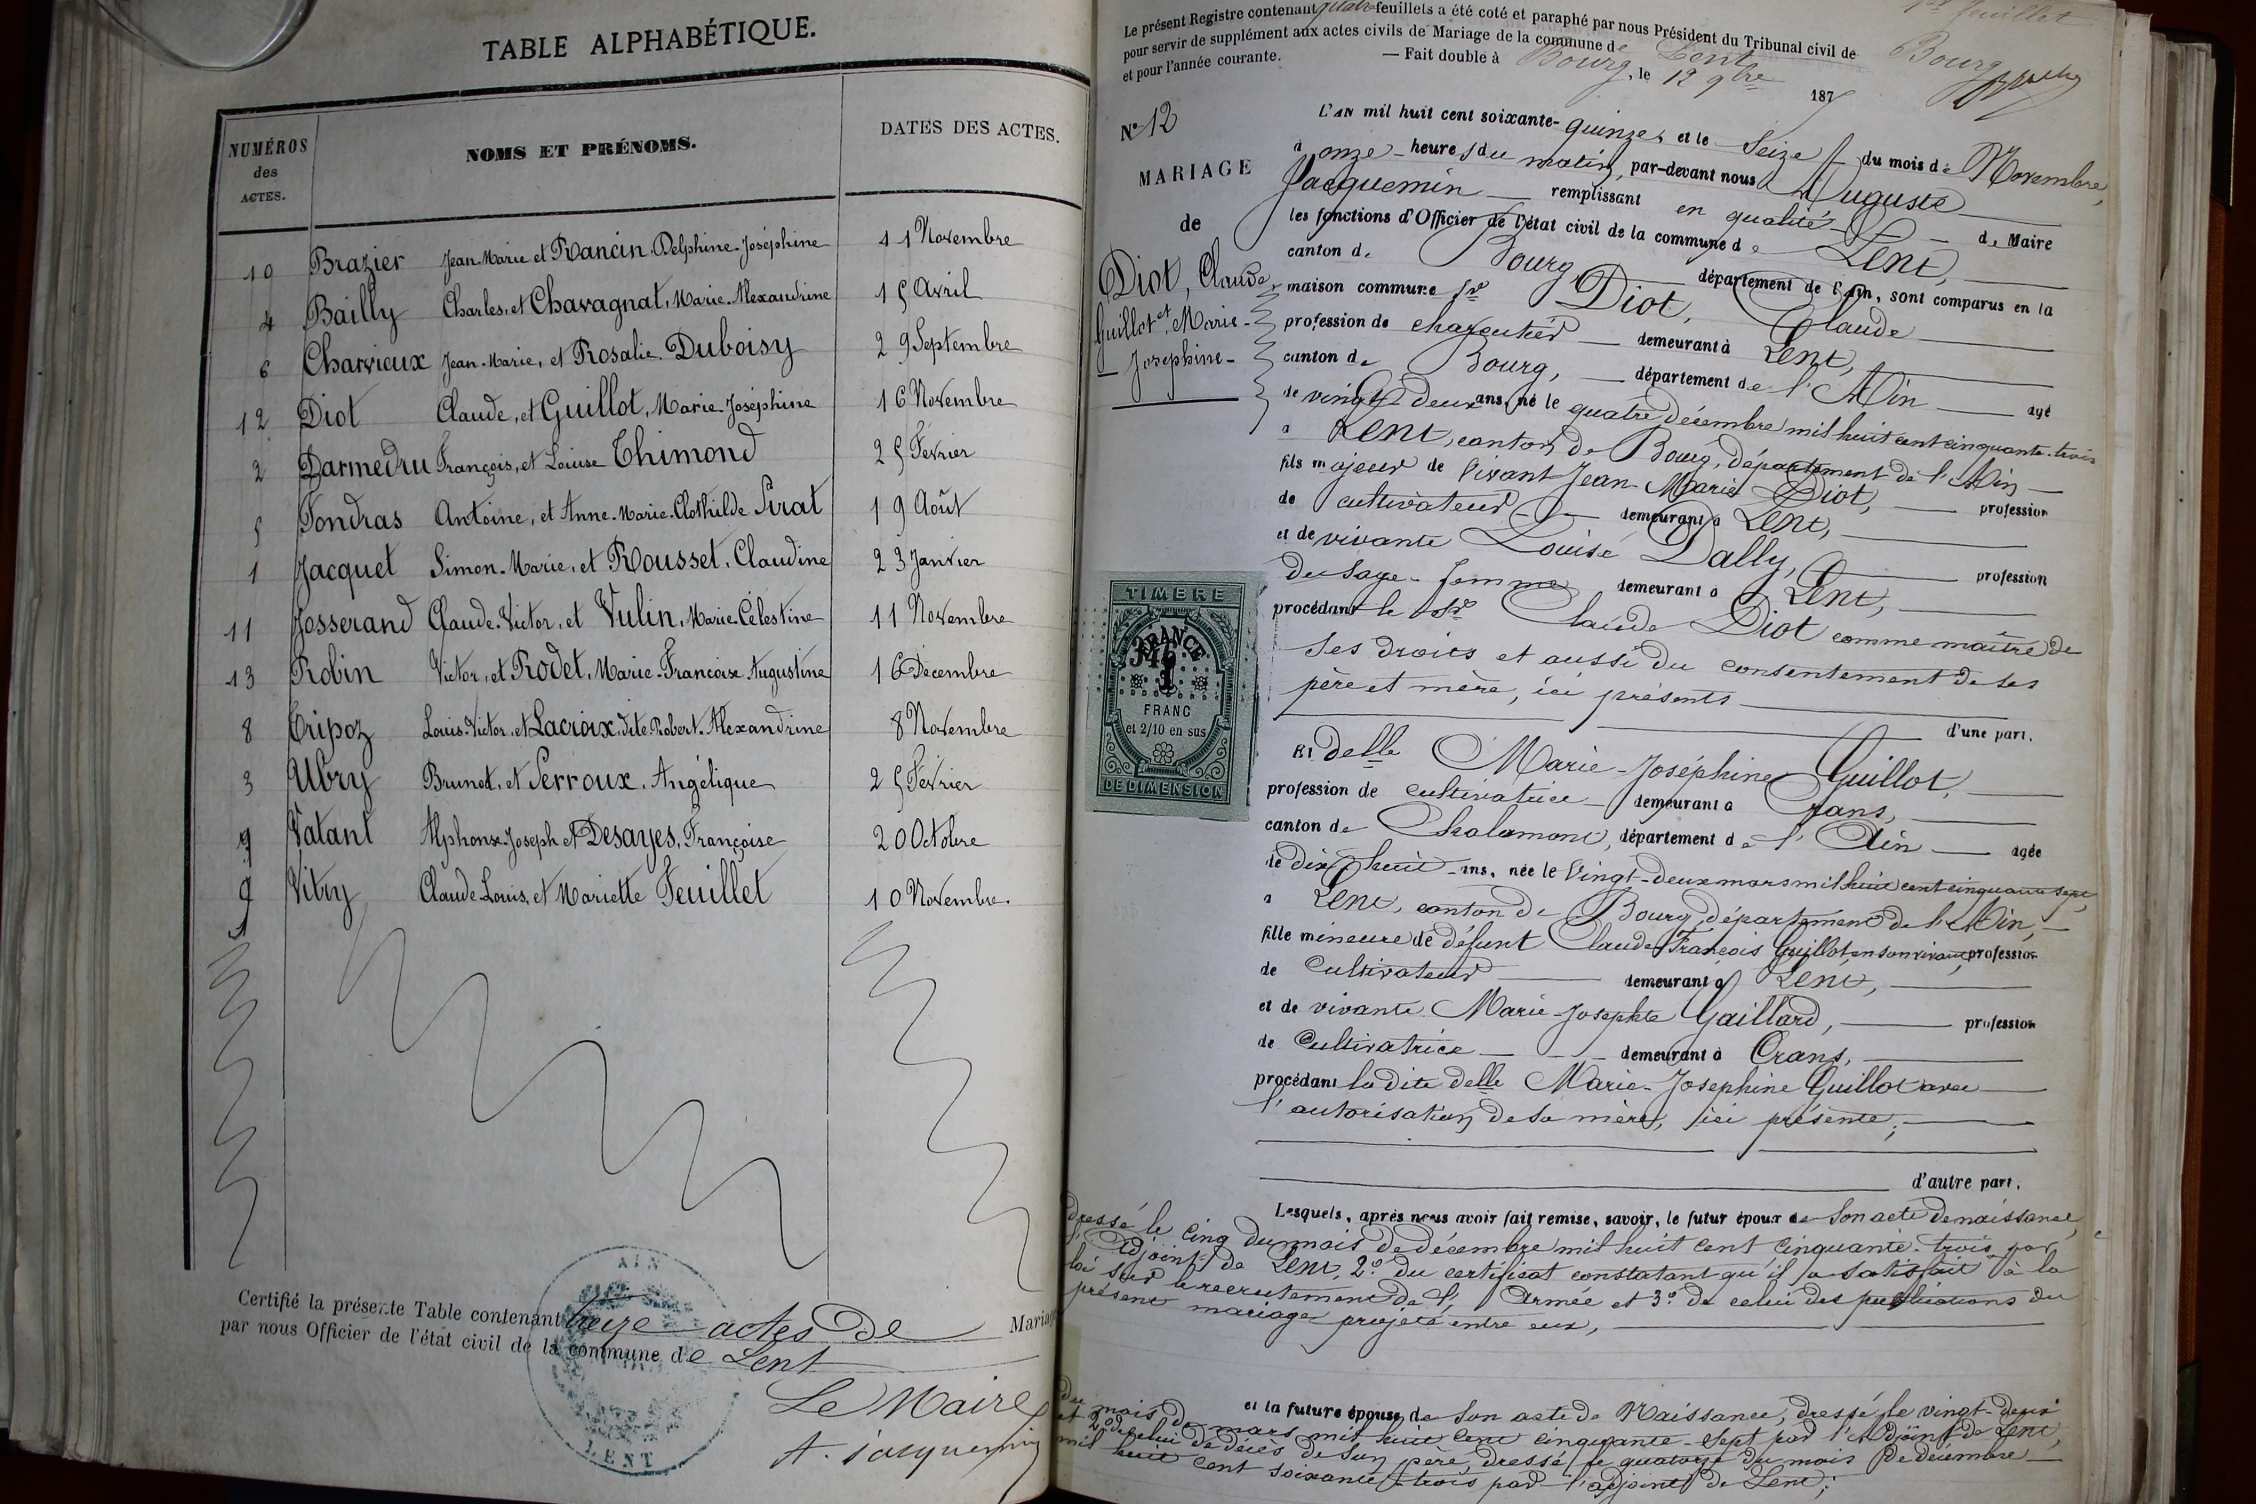 TABLE ALPHABÉTIQUE.
NUMÉROS des ACTES.
NOMS ET PRÉNOMS.
DATES DES ACTES.
10 Brazier Jean-Marie et Rancin Delphine-Joséphine 11 Novembre
4 Bailly Charles, et Chavagnat, Marie-Alexandrine 15 Avril
6 Charvieux Jean-Marie, et Rosalie Duboisy 29 Septembre
12 Diot Claude, et Guillot, Marie-Joséphine 16 Novembre
2 Darmedru François, et Louise Thimond 25 Février
5 Fondras Antoine, et Anne-Marie-Clothilde Pirat 19 Août
1 Jacquet Simon-Marie, et Rousset, Claudine 23 Janvier
11 Josserand Claude-Victor, et Vulin, Marie-Célestine 11 Novembre
13 Robin Victor, et Rodet, Marie-Françoise Augustine 16 Décembre
8 Tripoz Louis-Victor, et Lacroix, dite Robert-Alexandrine 8 Novembre
3 Ubry Brunot, et Perroux, Angélique 25 Février
7 Vatant Alphonse-Joseph et Desayes, Françoise 20 Octobre
9 Vitry Claude-Louis, et Mariette Feuillet 10 Novembre.
Certifié la présente Table contenant treize actes de Mariage
par nous Officier de l'état civil de la commune de Lent
AIN
LENT
Le Maire
A. Jacquemin
1er feuillet
Le présent Registre contenant quatre feuillets a été coté et paraphé par nous Président du Tribunal civil de Bourg
pour servir de supplément aux actes civils de Mariage de la commune de Lent
et pour l'année courante. — Fait double à Bourg, le 12 9bre 1875
No 12
MARIAGE
de
Diot, Claude,
et
Guillot, Marie-
Josephine-
TIMBRE
FRANCE
346
1
FRANC
et 2/10 en sus
DE DIMENSION
L'AN mil huit cent soixante-quinze, et le Seize du mois de Novembre,
à onze heures du matin, par-devant nous Auguste
Jacquemin remplissant en qualité de Maire
les fonctions d'Officier de l'état civil de la commune de Lent,
canton de Bourg, département de l'Ain, sont comparus en la
maison commune Sr Diot, Claude
profession de charcutier demeurant à Lent,
canton de Bourg, département de l'Ain âgé
de vingt-deux ans, né le quatre décembre mil huit cent cinquante-trois
à Lent, canton de Bourg, département de l'Ain
fils majeur de vivant Jean-Marie Diot, profession
de cultivateur demeurant à Lent,
et de vivante Louise Dally, profession
de sage-femme demeurant à Lent,
procédant le Sr Claude Diot comme maître de
ses droits et aussi du consentement de ses
père et mère, ici présents
d'une part.
Et delle Marie-Joséphine Guillot,
profession de cultivatrice demeurant à Crans,
canton de Chalamont, département de l'Ain âgée
de dix-huit ans, née le vingt-deux mars mil huit cent cinquante sept,
à Lent, canton de Bourg, département de l'Ain,
fille mineure de défunt Claude-François Guillot en son vivant, profession
de Cultivateur demeurant à Lent,
et de vivante Marie-Josephte Gaillard, profession
de Cultivatrice demeurant à Crans,
procédant la dite delle Marie-Josephine Guillot avec
l'autorisation de sa mère, ici présente;
d'autre part.
Lesquels, après nous avoir fait remise, savoir, le futur époux de son acte de naissance,
dressé le cinq du mois de décembre mil huit cent cinquante-trois par
l'adjoint de Lent, 2° du certificat constatant qu'il a satisfait à la
loi sur le recrutement de l'Armée et 3° de celui des publications du
présent mariage projeté entre eux,
et la future épouse, de son acte de Naissance, dressé le vingt-deux
du mois de mars mil huit cent cinquante-sept par l'Adjoint de Lent,
et 2° de celui de décès de son père, dressé le quatorze du mois de décembre
mil huit cent soixante-trois par l'adjoint de Lent;